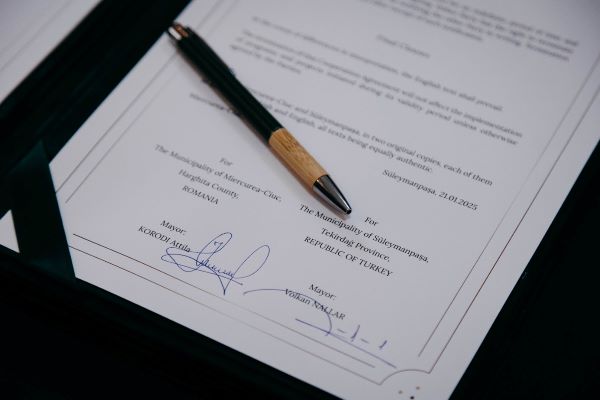 Final Clauses
In the event of differences in interpretation, the English text shall prevail.
The termination of this Cooperation Agreement will not affect the implementation
of programmes and projects initiated during its validity period unless otherwise
agreed by the Parties.
Miercurea-Ciuc and Süleymanpaşa, in two original copies, each of them
and English, all texts being equally authentic.
Süleymanpaşa, 21.01.2025
For
The Municipality of Miercurea-Ciuc,
Harghita County,
ROMANIA
Mayor:
KORODI Attila
For
The Municipality of Süleymanpaşa,
Tekirdağ Province,
REPUBLIC OF TURKEY
Mayor:
Volkan NALLAR